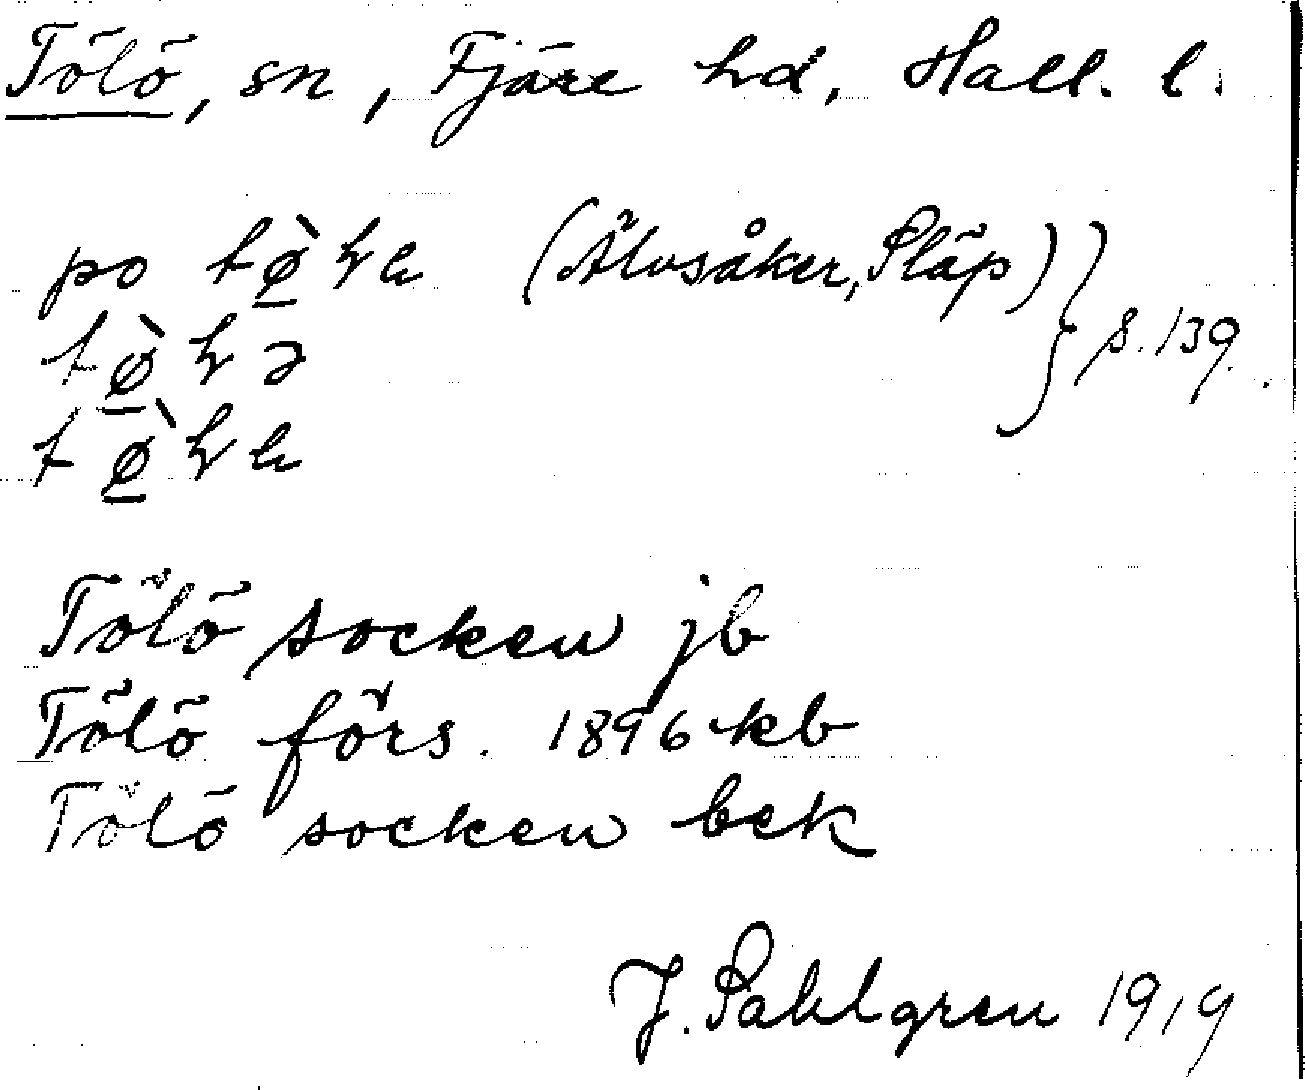 Tölö, sn, Fjäre hd, Hall. l.
po tø̠̀ɬe (Älvsåker, Släp)
tø̠̀ɬə
tø̠̀ɬe
} s. 139.
Tölö socken jb
Tölö förs. 1896 kb
Tölö socken bek
J. Sahlgren 1919